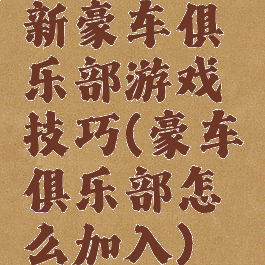 新豪车俱
乐部游戏
技巧(豪车
俱乐部怎
么加入)